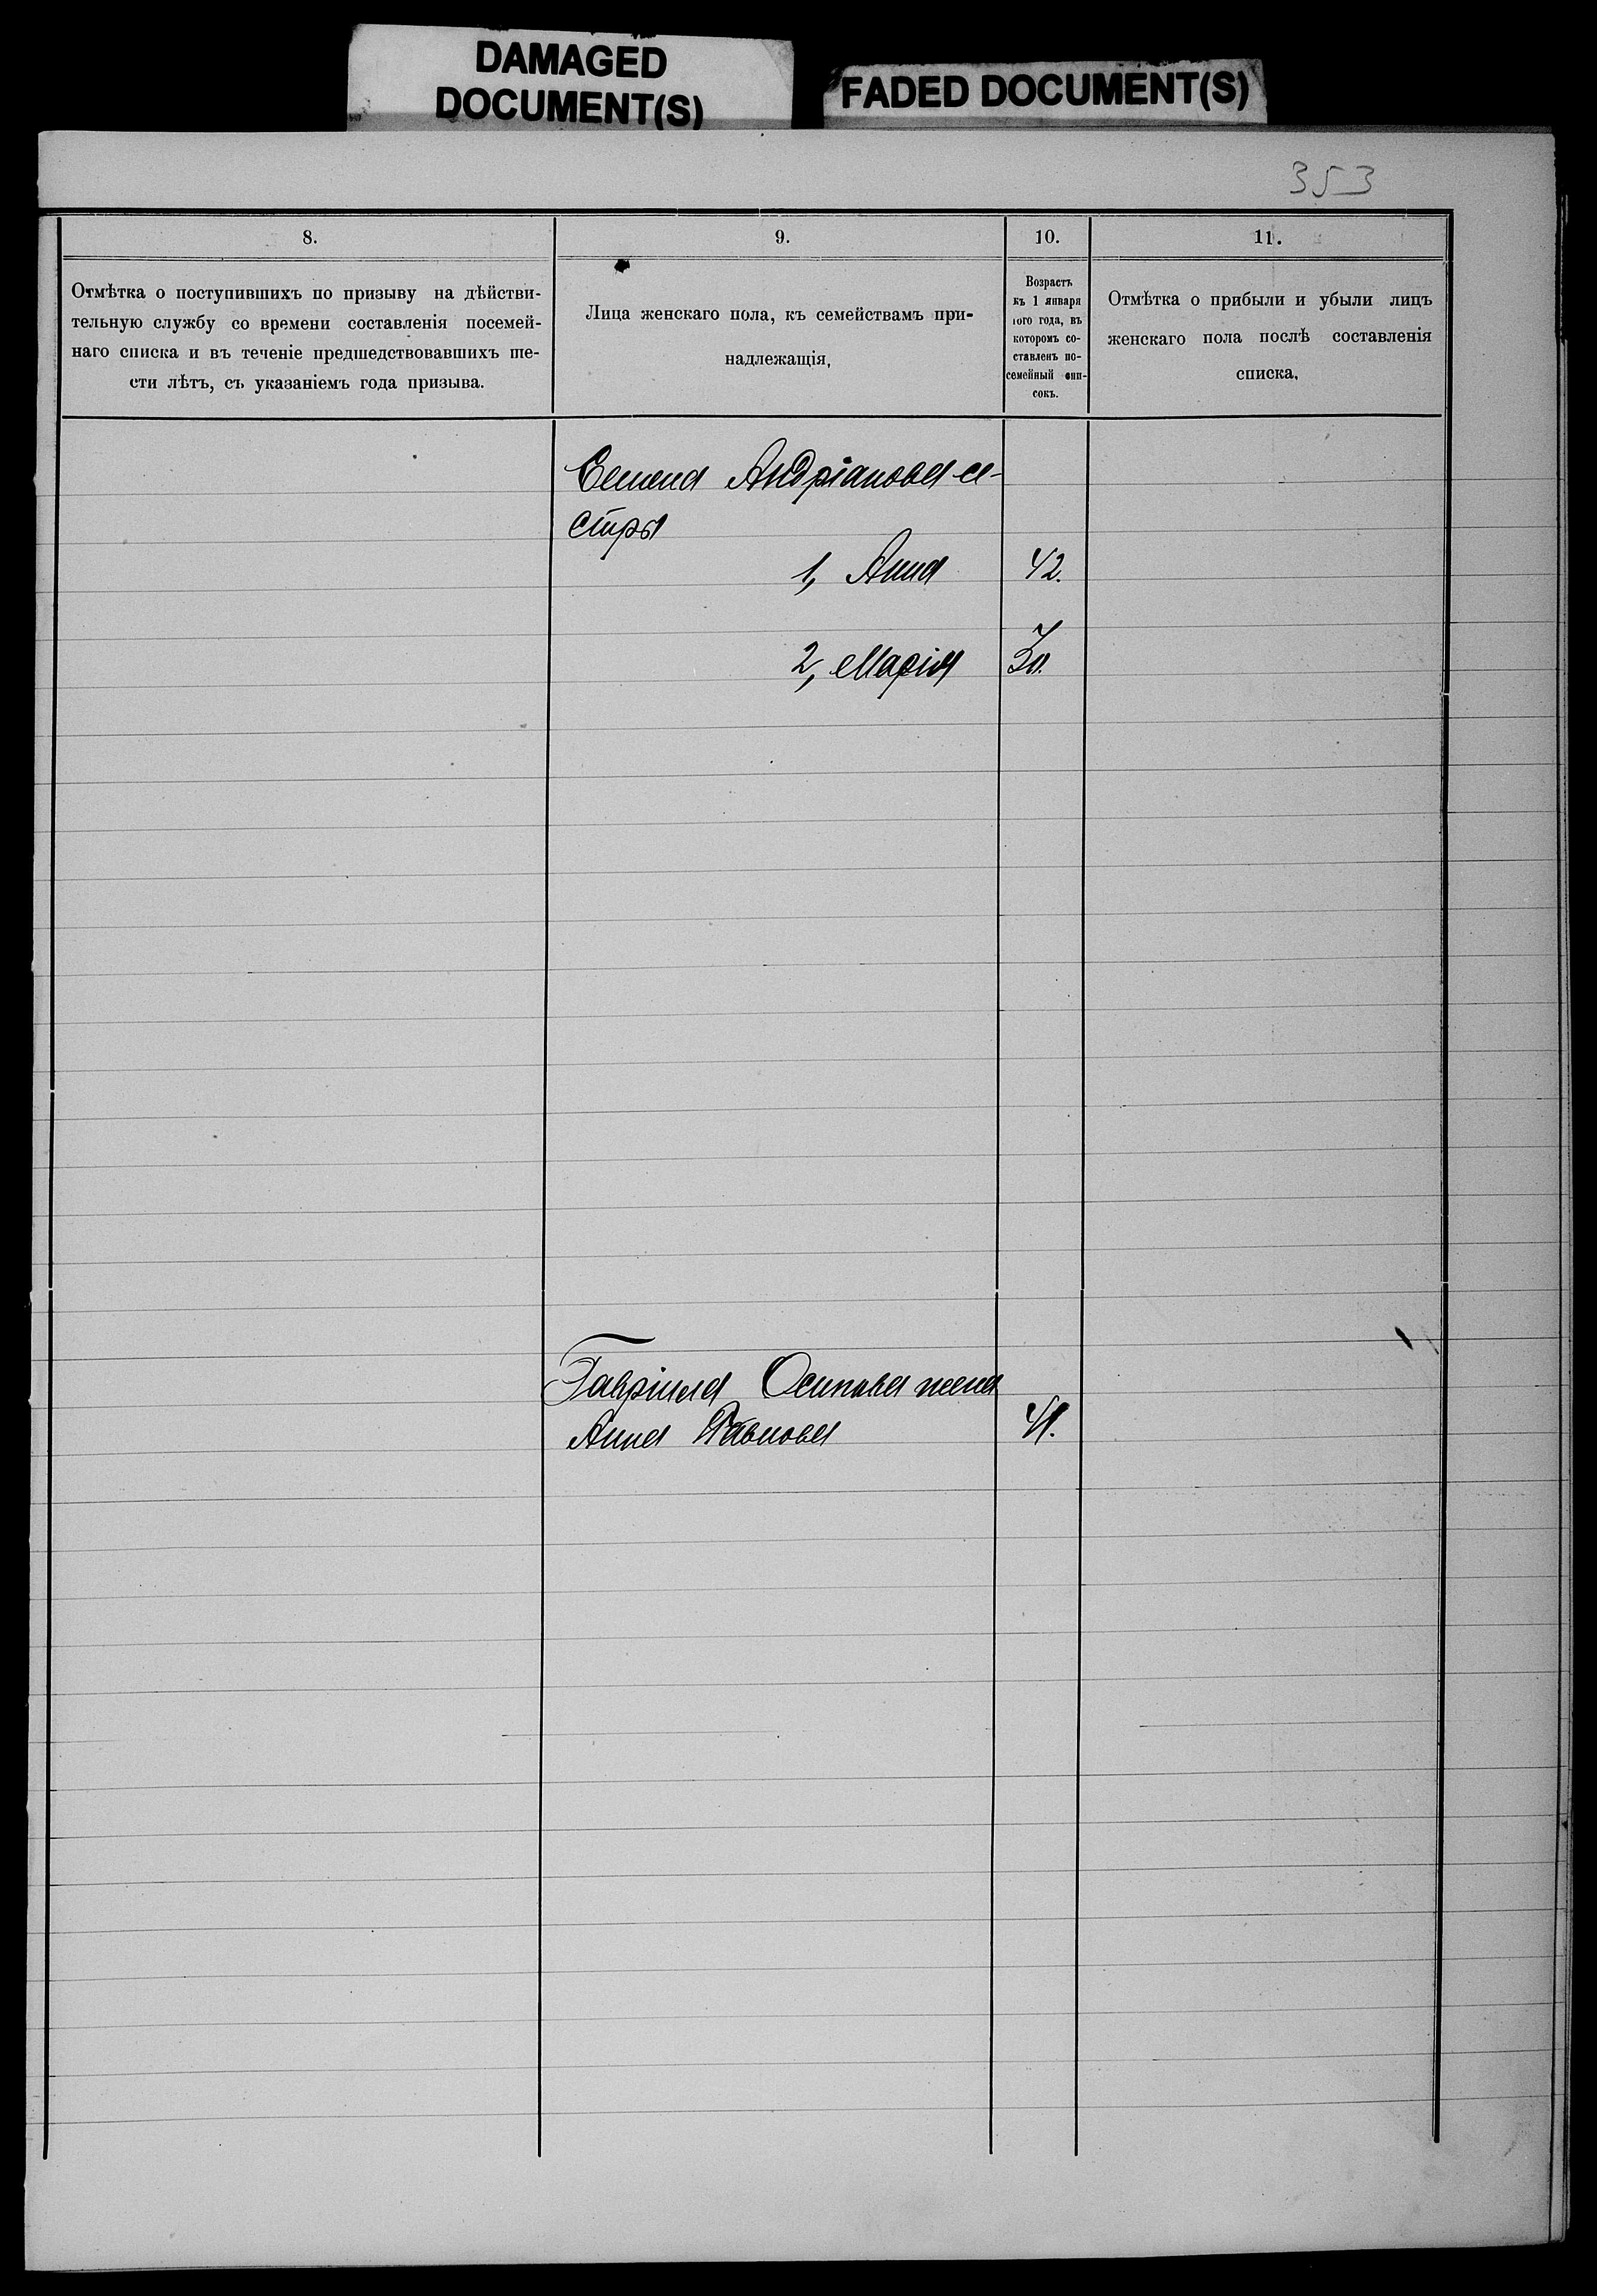 DAMAGED
DOCUMENT(S)
FADED DOCUMENT(S)
353
8.
9.
10.
11.
Отмѣтка о поступившихъ по призыву на дѣйстви-
тельную службу со времени составленія посемей-
наго списка и въ теченіе предшедствовавшихъ ше-
сти лѣтъ, съ указаніемъ года призыва.
Лица женскаго пола, къ семействамъ при-
надлежащія,
Возрастъ
къ 1 января
того года, въ
которомъ со-
ставленъ по-
семейный спи-
сокъ.
Отмѣтка о прибыли и убыли лицъ
женскаго пола послѣ составленія
списка,
Семена Андріанова се-
стры
1, Анна 42.
2, Марія
Гавріила Осипова жена
Анна Павлова 41.